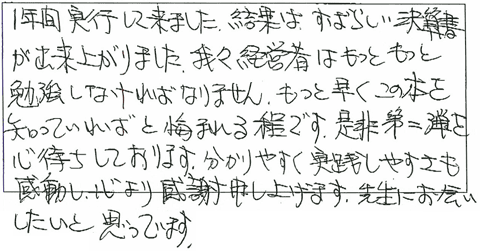 1年間実行して来ました。結果は すばらしい決算書
が出来上がりました。我々経営者はもっともっと
勉強しなければなりません。もっと早くこの本を
知っていればと悔まれる程です。是非第二弾を
心待ちしております。分かりやすく実践しやすさも
感動し、心より感謝申し上げます。先生にお会い
したいと思っています。